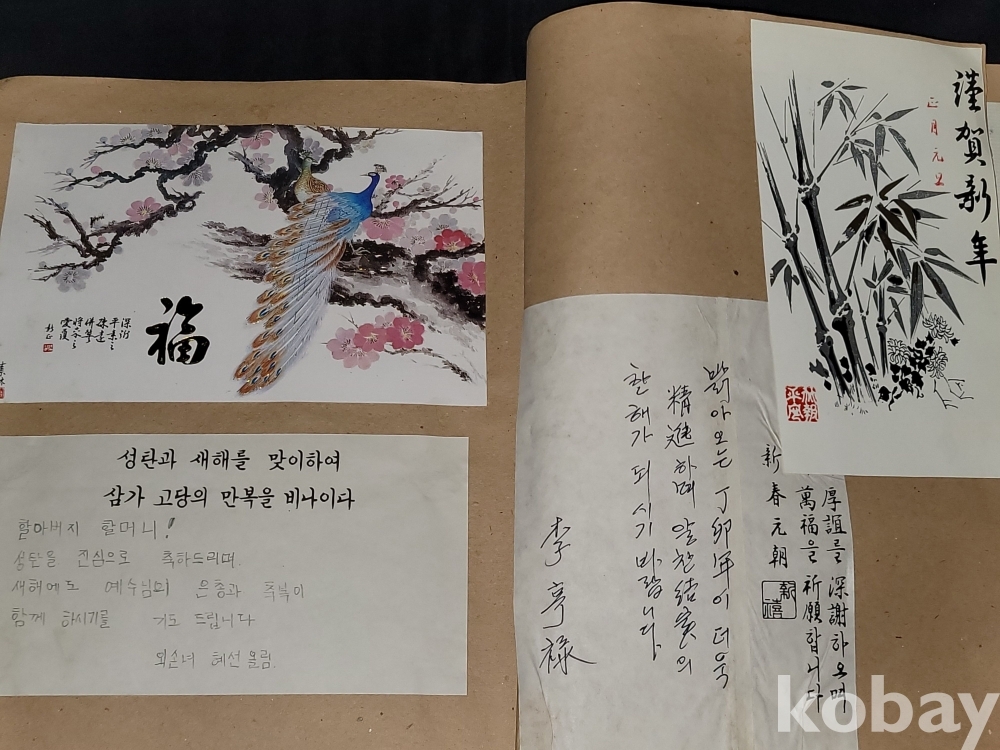 福
성탄과 새해를 맞이하여
삼가 고당의 만복을 비나이다
할아버지 할머니!
성탄을 진심으로 축하드리며
새해에도 예수님의 은총과 축복이
함께 하시기를 기도 드립니다
외손녀 혜선 올림.
謹賀新年
正月元旦
厚誼를 深謝하오며
萬福을 祈願합니다
新春元朝
新禧
밝아오는 丁卯年이 더욱
精進하며 알찬 結實의
한해가 되시기 바랍니다
李亨祿
kobay